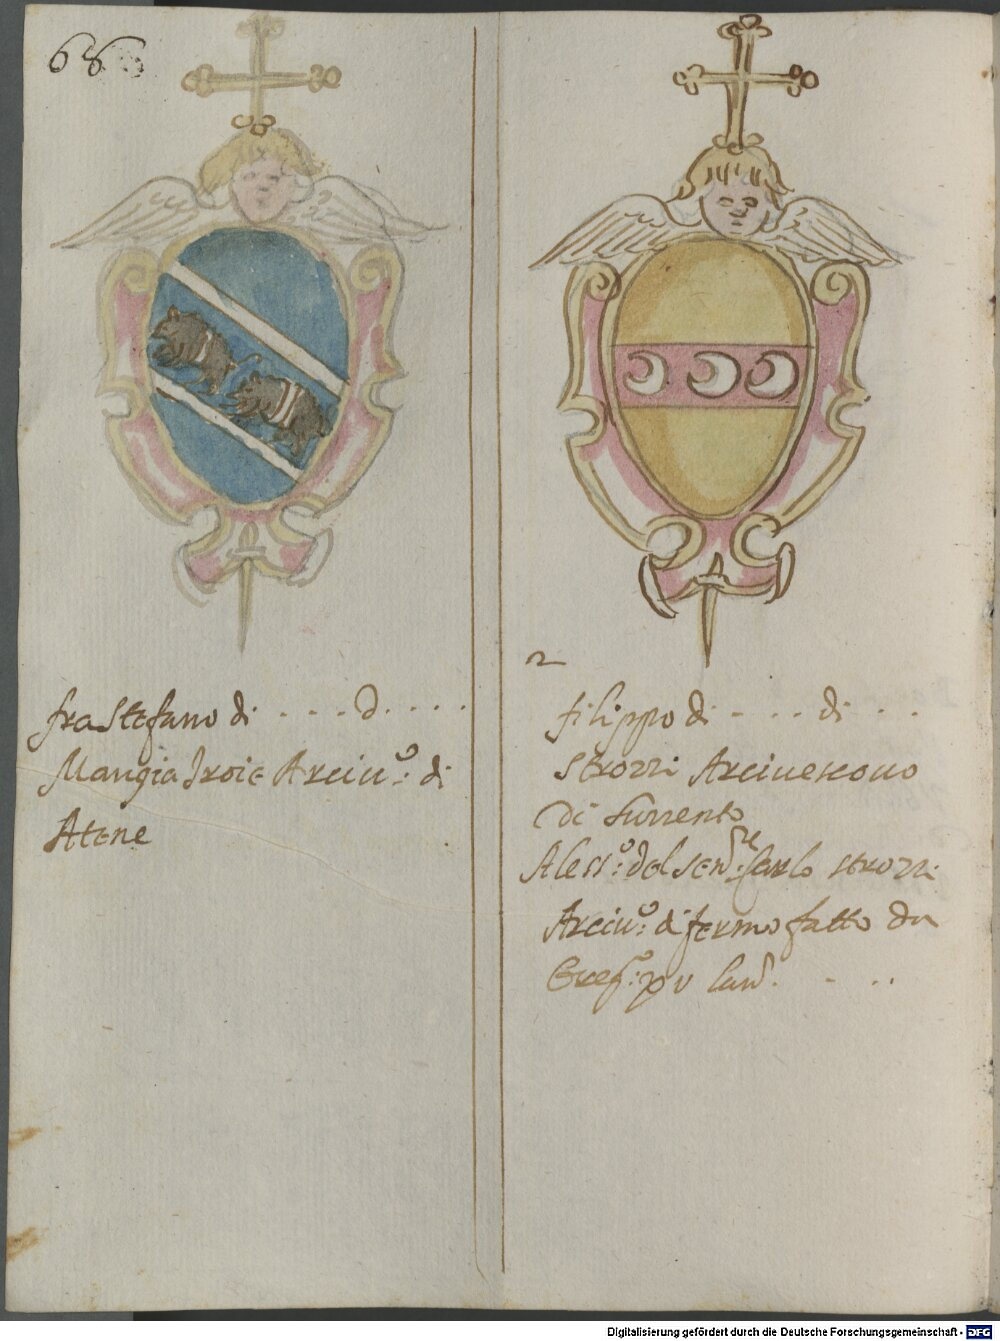 66
fra Stefano di . . . . D. . . . .
Mangia Troie Arciuo: di
Atene
2
filippo di - . . . di . . .
Strozzi Arciuescouo
Di Surrento
Aless.o del Senre: Carlo Strozzi
Arciuo: di fermo fatto da
Greg.o: xv
Digitalisierung gefördert durch die Deutsche Forschungsgemeinschaft - DFG